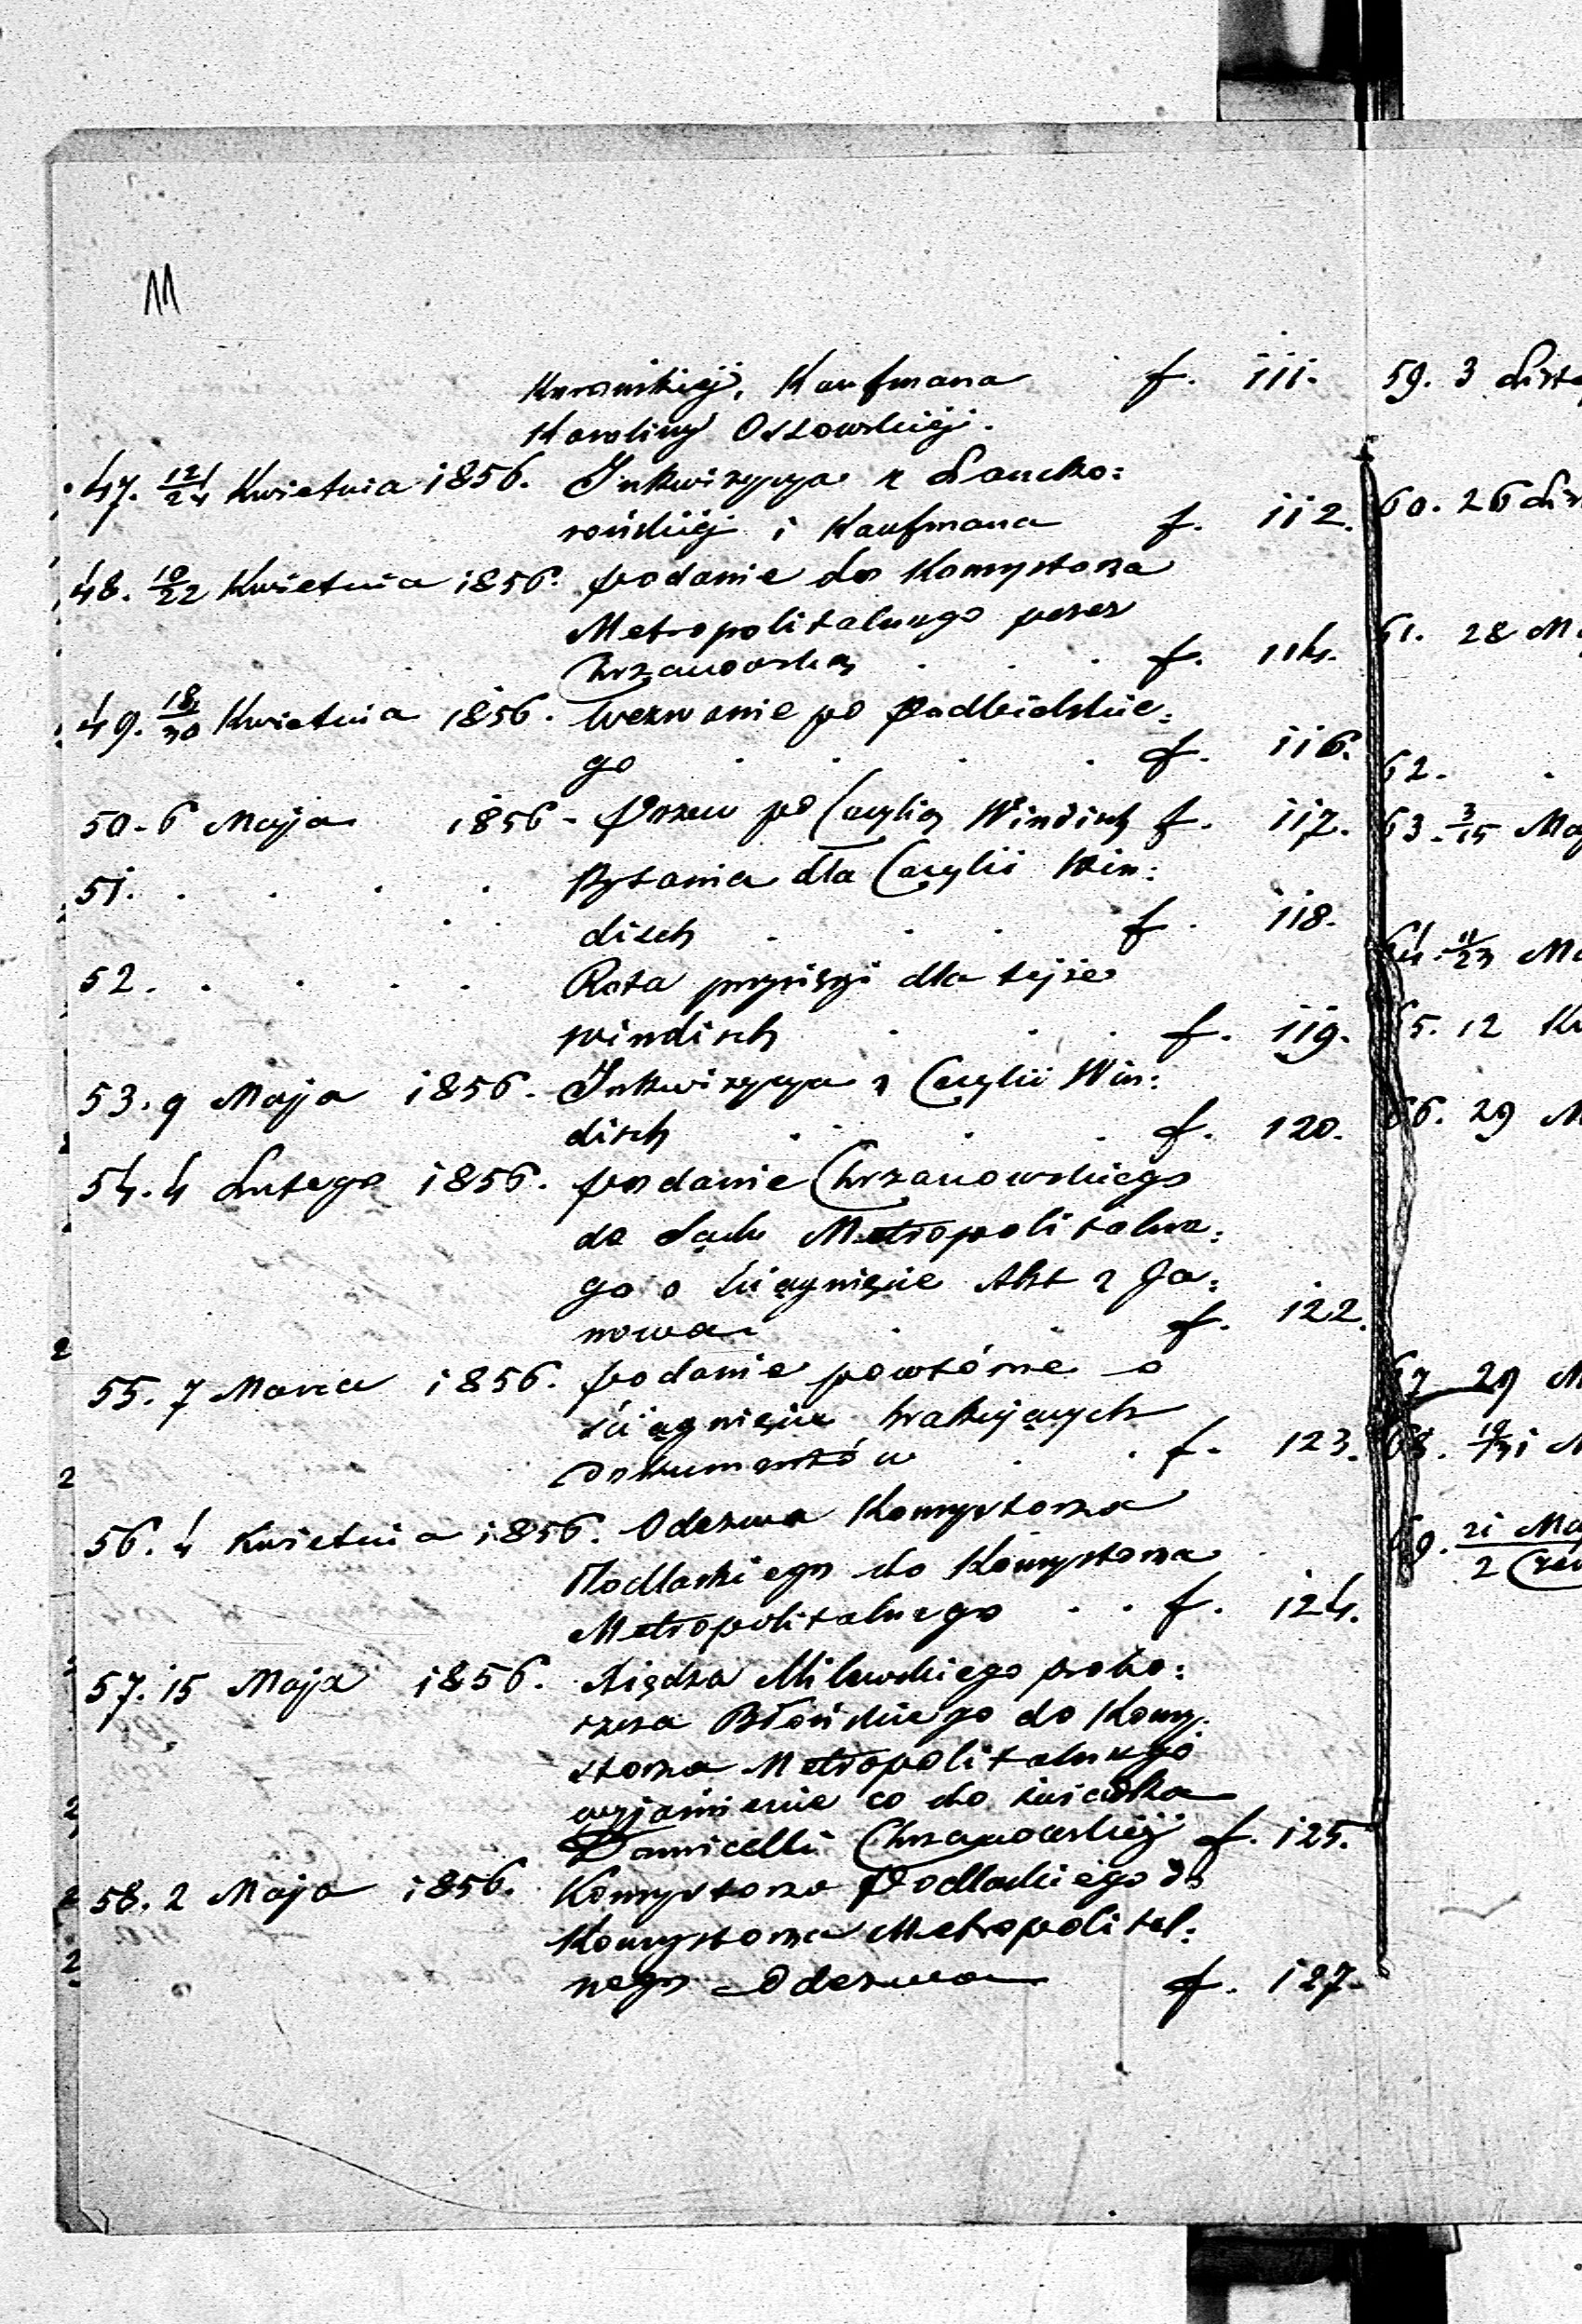 11
Kurowskiéj, Kaufmana f. 111.
Karoliny Ossowskiéj.
47. 12/24 Kwietnia 1856. Inkwizycya z Lancko:
rońskiéj i Kaufmana f. 112.
48. 10/22 Kwietnia 1856. podanie do Konsystorza
Metropolitalnego przez
Chrzanowską . . . f. 114.
49. 18/30 Kwietnia 1856. Wezwanie po Podbielskie:
go . . . . f. 116.
50. 6 Maja 1856. Pozew po Cecylią Windisch f. 117.
51. . . . . Pytania dla Cecylii Win:
disch . . . f. 118.
52. . . . . Rota przysięgi dla tejże
Windisch . . . f. 119.
53. 9 Maja 1856. Inkwizycya z Cecylii Win:
disch . . . f. 120.
54. 4 Lutego 1856. podanie Chrzanowskiego
do Sądu Metropolitalne:
go o ściągnięcie Akt z Ja:
nowa . . f. 122.
55. 7 Marca 1856. podanie powtórne o
ściągnięcie brakujących
Dokumentów . . f. 123.
56. 4 Kwietnia 1856. Odezwa Konsystorza
Podlaskiego do Konsystorza
Metropolitalnego . . f. 124.
57. 15 Maja 1856. Xiędza Milewskiego probo:
szcza Błońskiego do Konsy:
storza Metropolitalnego
wyjaśnienie co do świadka
Domicelli Chrzanowskiéj f. 125.
58. 2 Maja 1856. Konsystorza Podlaskiego do
Konsystorza Metropolital:
nego Odezwa f. 127.
59. 3 Listo
60. 26 Lis
61. 28 M
62. .
63. 3/15 Ma
64. 11/23 Ma
65. 12 K
66. 29 M
67 29 M
68. 19/31 M
69. 21 Ma
2 Czer